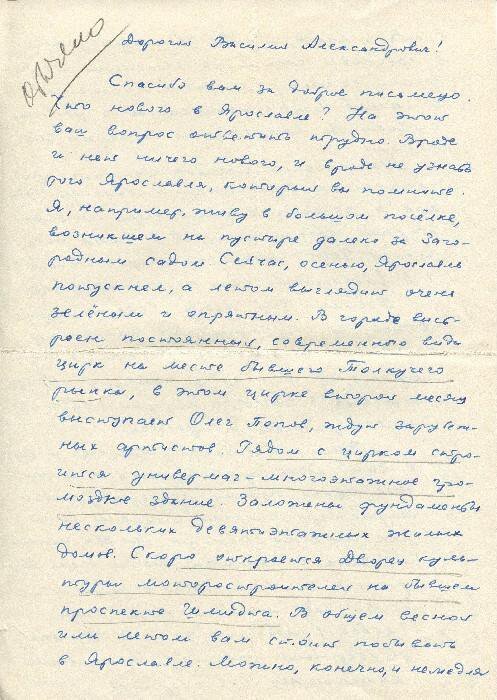 отвечено
Дорогой Василий Александрович!
Спасибо вам за доброе письмецо.
Что нового в Ярославле? На этот
ваш вопрос ответить трудно. Вроде
и нет ничего нового, и вроде не узнать
того Ярославля, который вы помните.
Я, например, живу в большом посёлке,
возникшем на пустыре далеко за Заго-
родным садом. Сейчас, осенью, Ярославль
потускнел, а летом выглядит очень
зелёным и опрятным. В городе выст-
роен постоянный, современного вида
цирк на месте бывшего Толкучего
рынка, в этом цирке второй месяц
выступает Олег Попов, ждут зарубеж-
ных артистов. Рядом с цирком стро-
ится универмаг – многоэтажное гро-
моздкое здание. Заложены фундаменты
нескольких девятиэтажных жилых
домов. Скоро откроется Дворец куль-
туры моторостроителей на бывшем
проспекте Шмидта. В общем весной
или летом вам стоит побывать
в Ярославле. Можно, конечно, и немедля